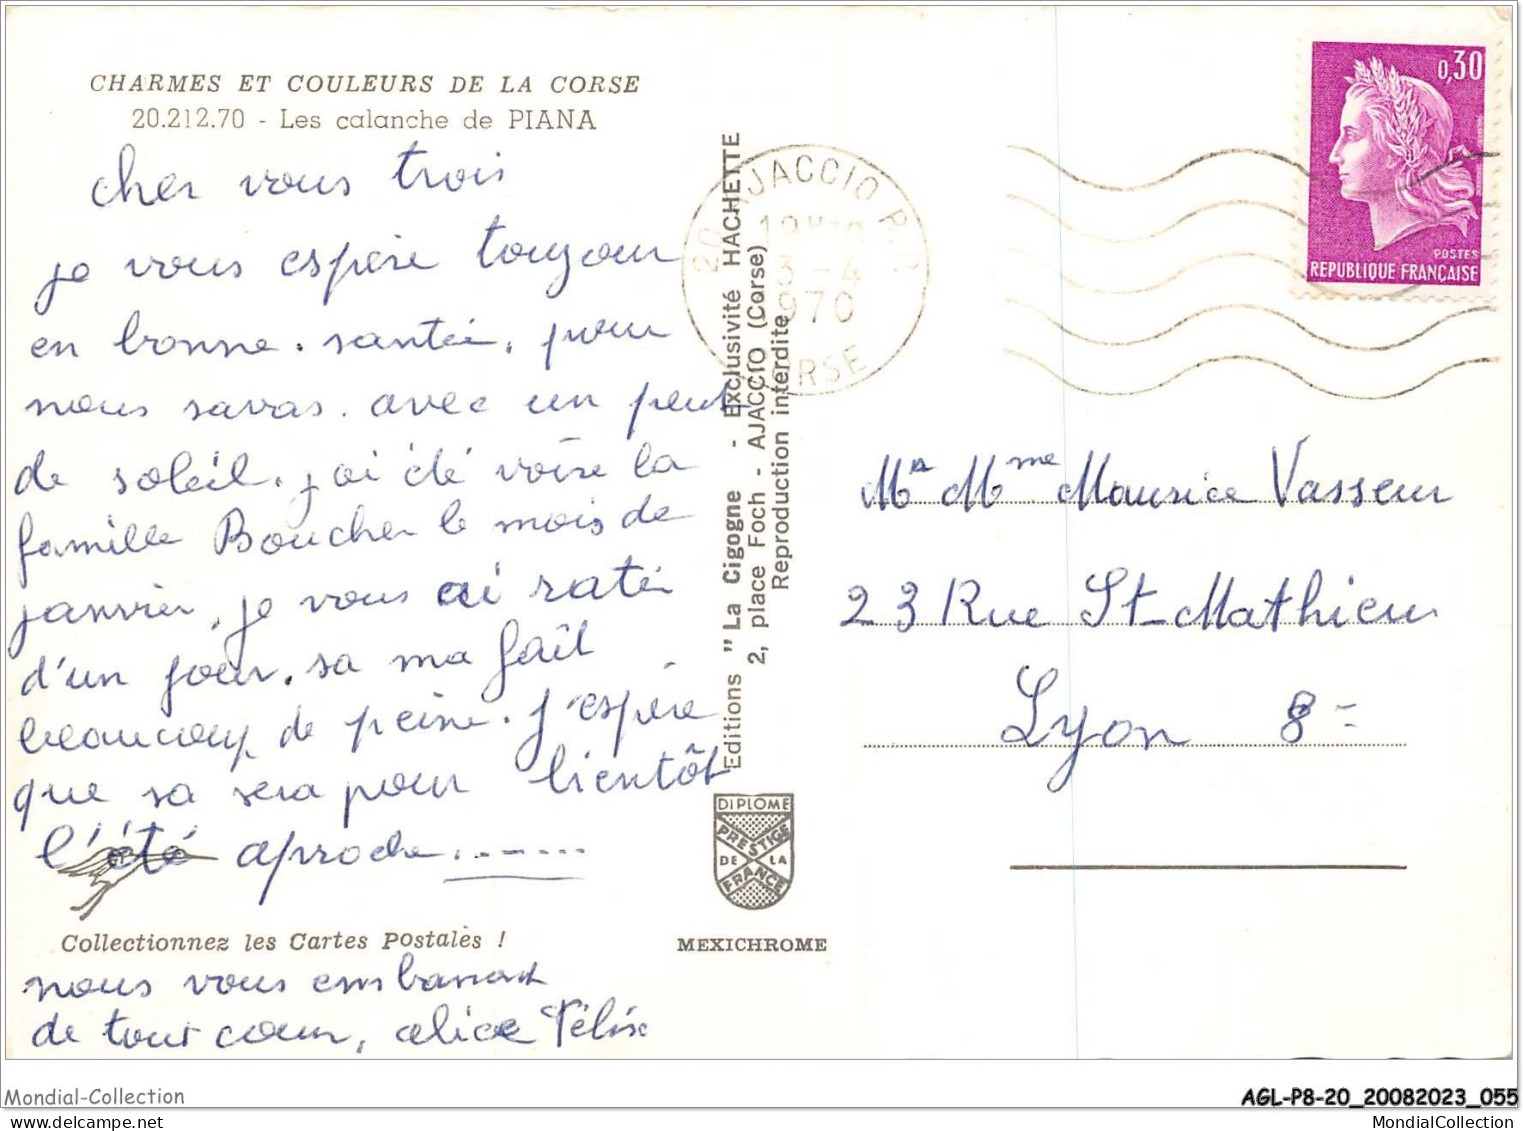 CHARMES ET COULEURS DE LA CORSE
20.212.70 - Les calanche de PIANA
cher vous trois
je vous espère toujour
en bonne. santée, pour
nous savas. avec un peut
de soleil. j'ai été voire la
famille Boucher le mois de
janvier, je vous ai ratée
d'un jour. sa ma fait
beaucoup de peine. j'espère
que sa sera pour bientôt
l'été aproche.......
Collectionnez les Cartes Postales !
nous vous
de tout cœur, alice Félix
Editions " La Cigogne - Exclusivité HACHETTE
2, place Foch - AJACCIO (Corse)
Reproduction interdite
DIPLOME
PRESTIGE
DE LA
FRANCE
MEXICHROME
20 AJACCIO R.P
3 -4
1970
CORSE
0,30
POSTES
REPUBLIQUE FRANÇAISE
Mr Mme Maurice Vasseur
23 Rue St-Mathieu
Lyon 8=
Mondial-Collection
AGL-P8-20_20082023_055
MondialCollection